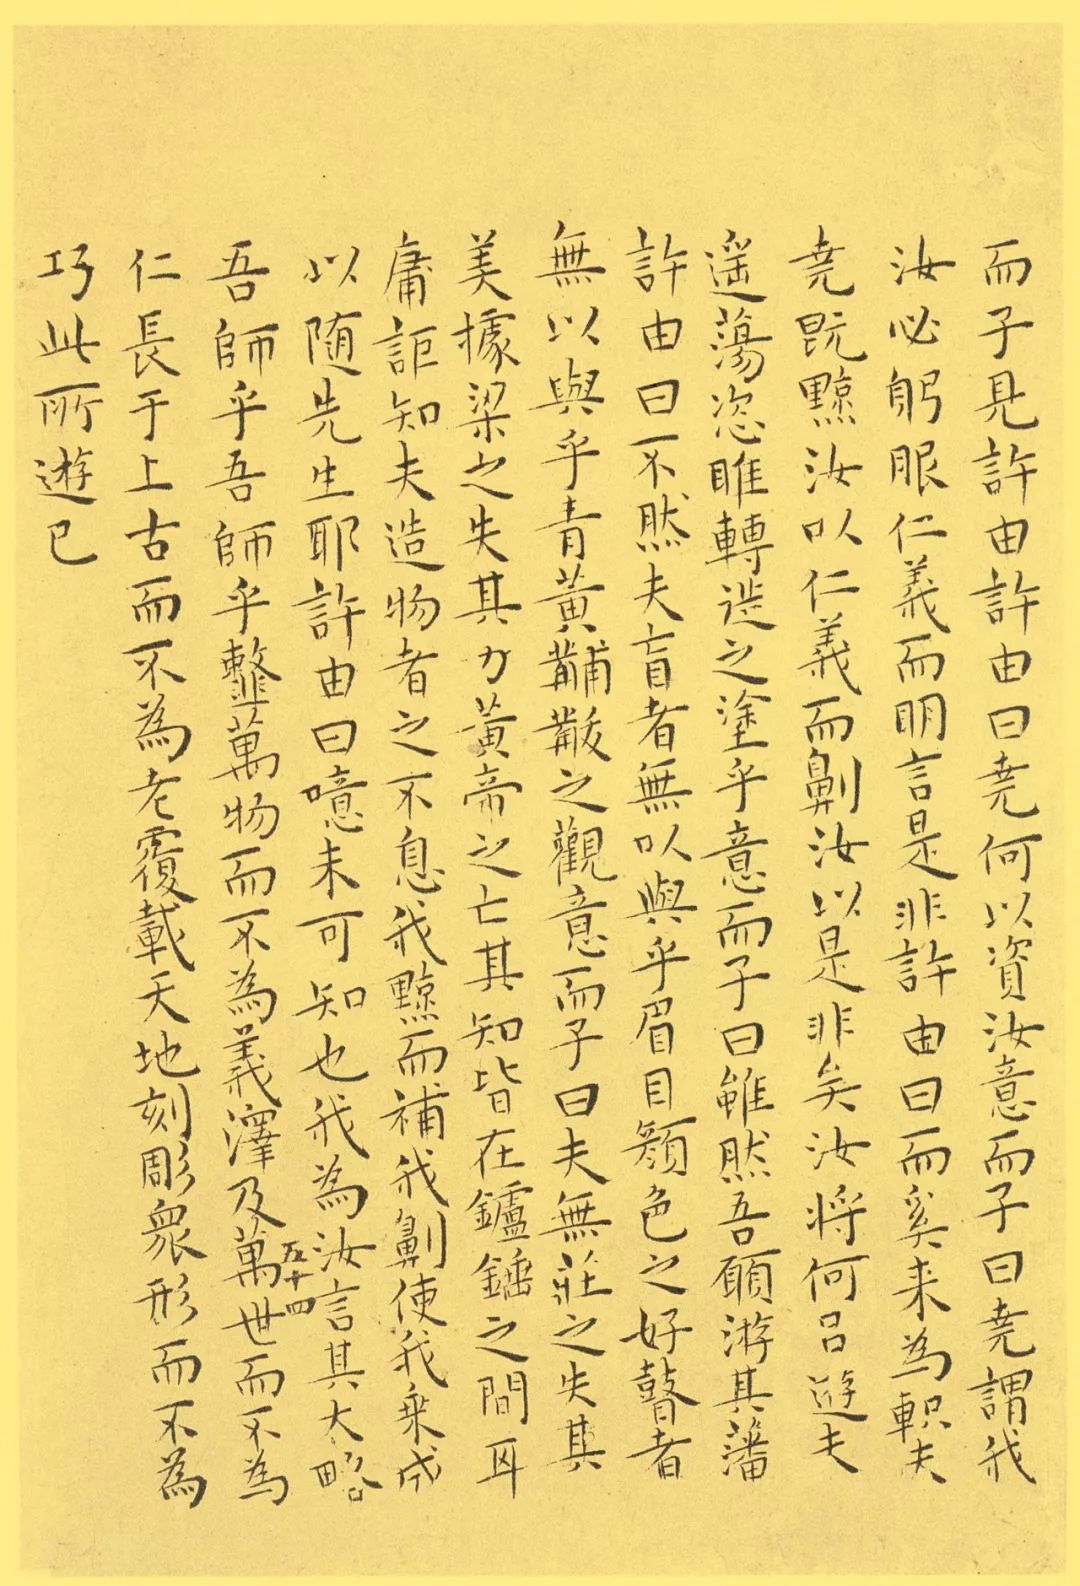 而子見許由許由曰堯何以資汝意而子曰堯謂我
汝必躬服仁義而明言是非許由曰而奚来為軹夫
堯既黥汝以仁義而劓汝以是非矣汝将何吕遊夫
遥蕩恣睢轉徙之塗乎意而子曰雖然吾願游其藩
許由曰不然夫盲者無以與乎眉目顔色之好瞽者
無以與乎青黃黼黻之觀意而子曰夫無莊之失其
美據梁之失其力黃帝之亡其知皆在鑪錘之間耳
庸詎知夫造物者之不息我黥而補我劓使我乗成
以随先生耶許由曰噫未可知也我為汝言其大略
吾師乎吾師乎韲萬物而不為義澤及萬世而不為
五十四
仁長于上古而不為老覆載天地刻彫衆形而不為
巧此所遊已